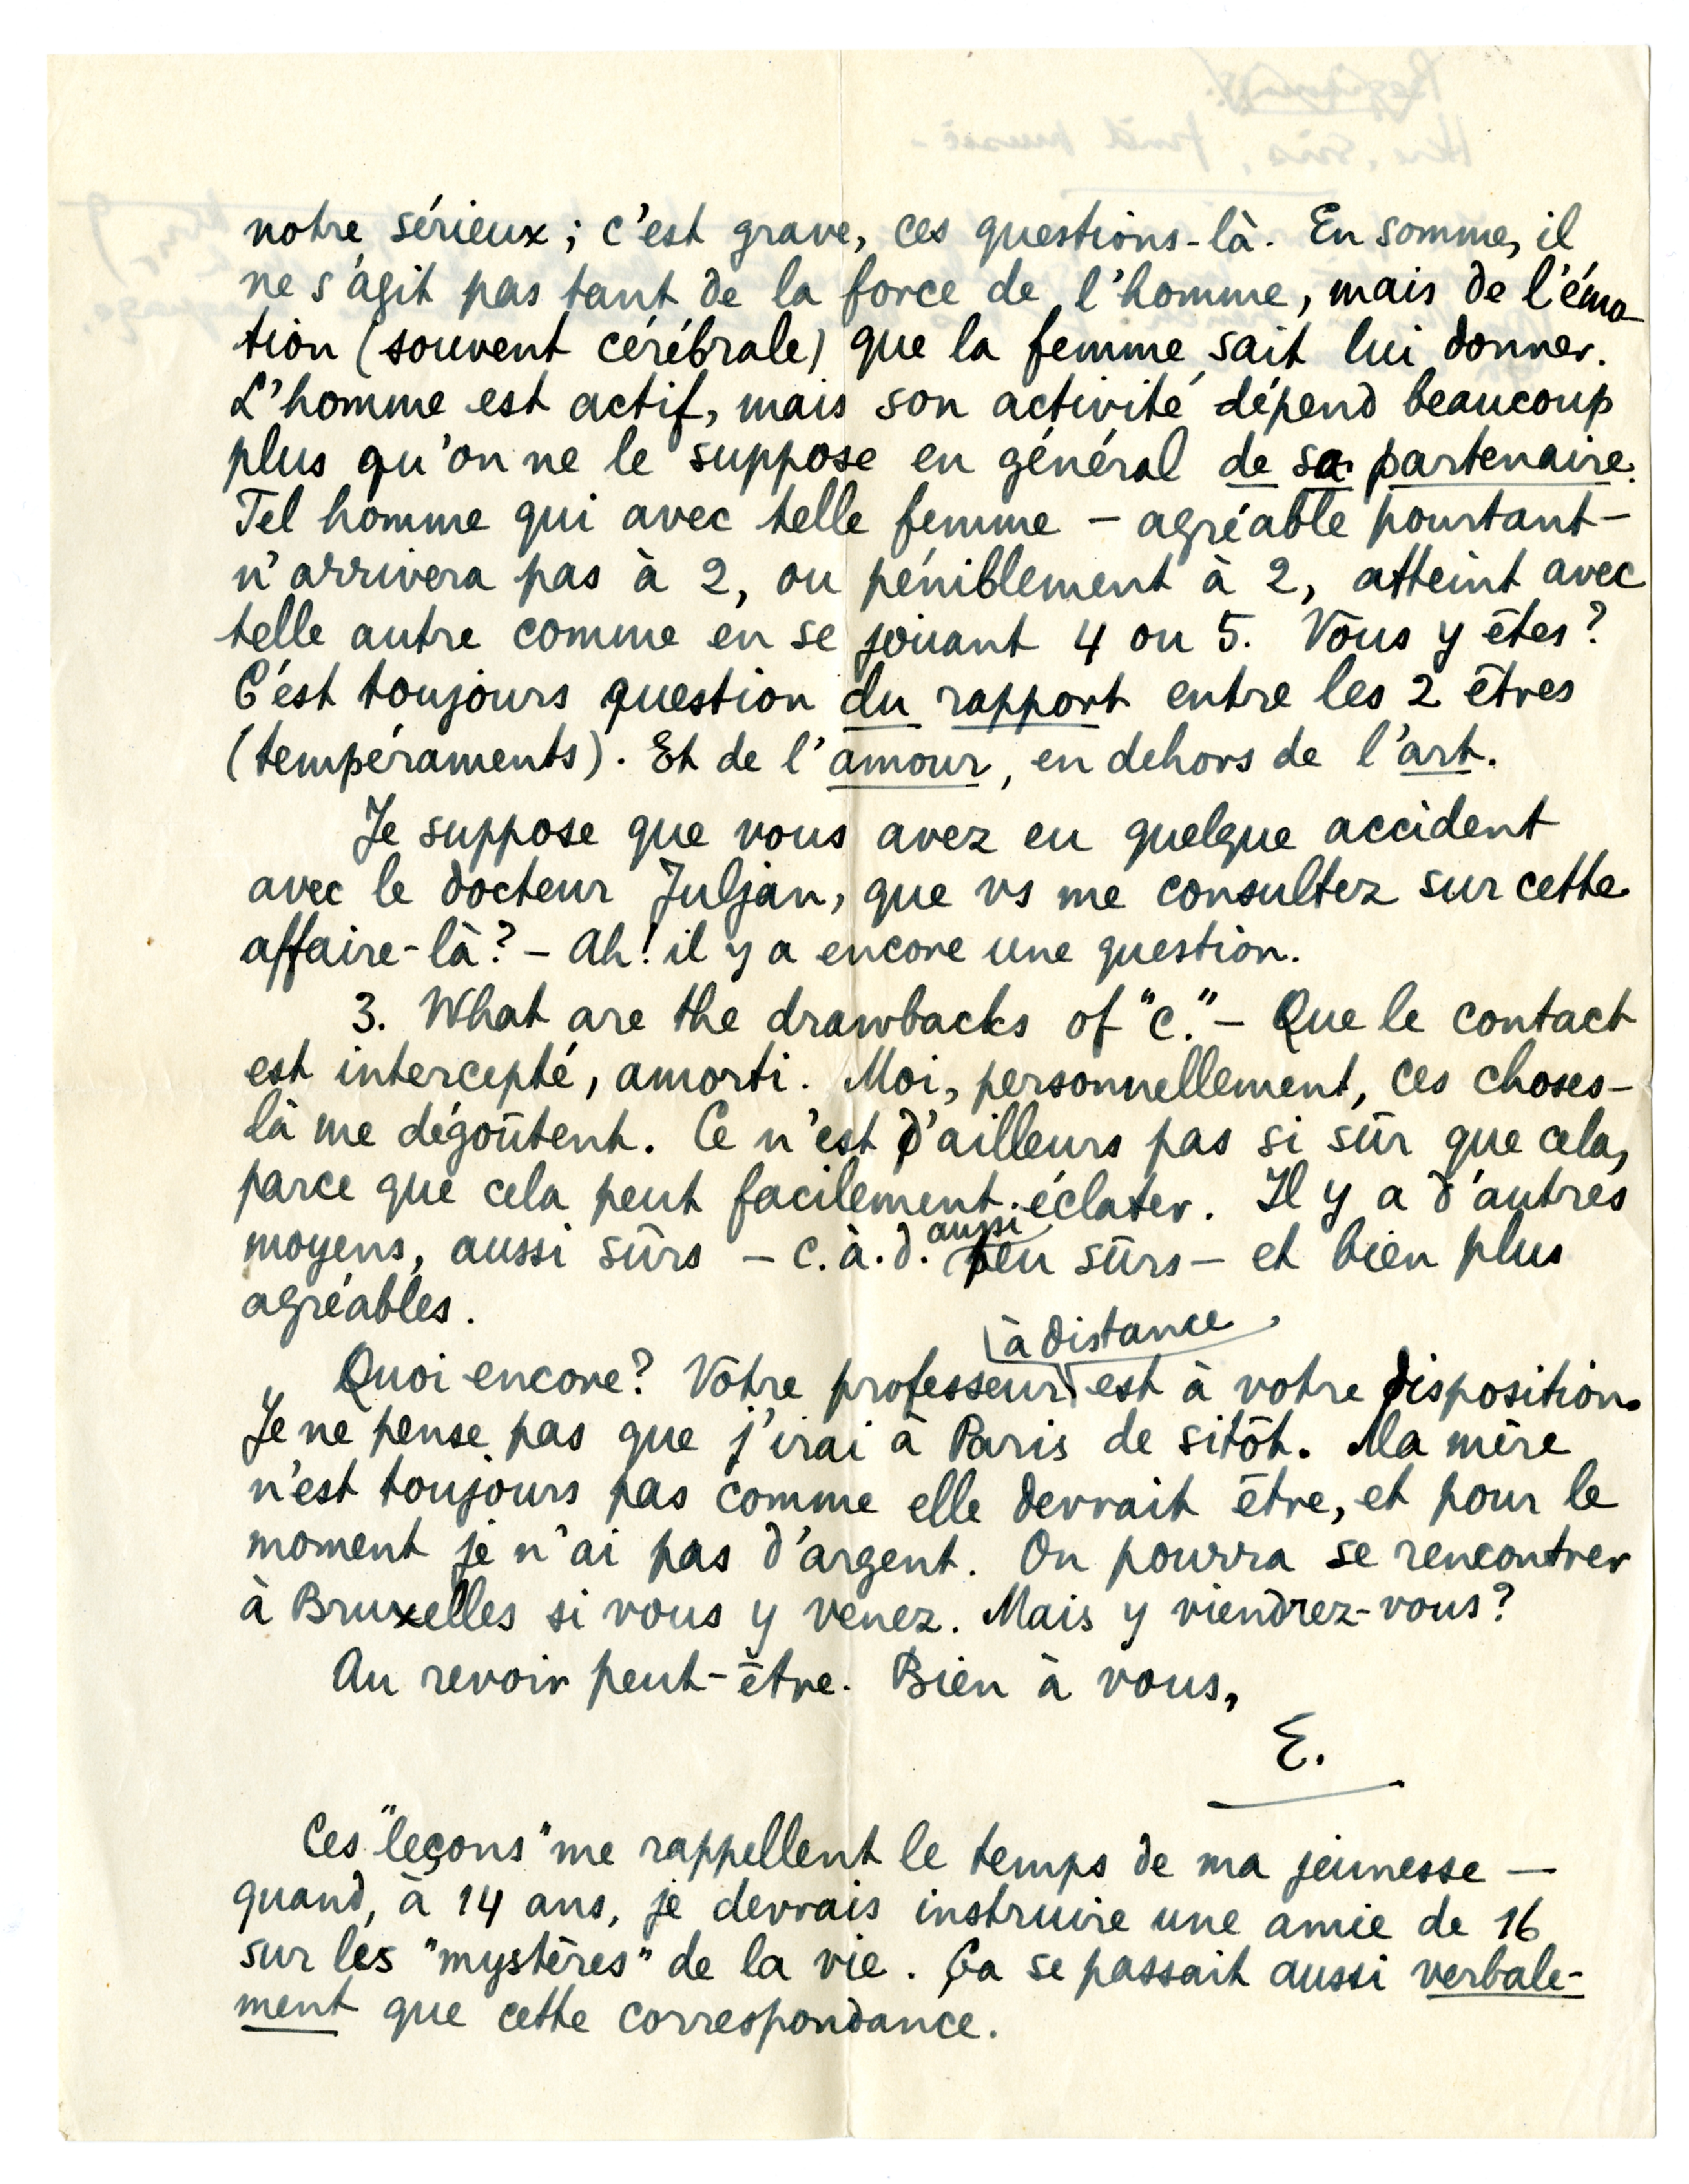 notre sérieux ; c'est grave, ces questions-là. En somme, il
ne s'agit pas tant de la force de l'homme, mais de l'émo-
tion (souvent cérébrale) que la femme sait lui donner.
L'homme est actif, mais son activité dépend beaucoup
plus qu'on ne le suppose en général de sa partenaire.
Tel homme qui avec telle femme – agréable pourtant –
n'arrivera pas à 2, ou péniblement à 2, atteint avec
telle autre comme en se jouant 4 ou 5. Vous y êtes?
C'est toujours question du rapport entre les 2 êtres
(tempéraments). Et de l'amour, en dehors de l'art.
Je suppose que vous avez eu quelque accident
avec le docteur Juljan, que vs me consultez sur cette
affaire-là? – Ah! il y a encore une question.
3. What are the drawbacks of "c." – Que le contact
est intercepté, amorti. Moi, personnellement, ces choses-
là me dégoûtent. Ce n'est d'ailleurs pas si sûr que cela,
parce que cela peut facilement éclater. Il y a d'autres
moyens, aussi sûrs – c.à.d. aussi peu sûrs – et bien plus
agréables.
Quoi encore? Votre professeur à distance est à votre disposition.
Je ne pense pas que j'irai à Paris de sitôt. Ma mère
n'est toujours pas comme elle devrait être, et pour le
moment je n'ai pas d'argent. On pourra se rencontrer
à Bruxelles si vous y venez. Mais y viendrez-vous?
Au revoir peut-être. Bien à vous,
E.
Ces "leçons" me rappellent le temps de ma jeunesse –
quand, à 14 ans, je devrais instruire une amie de 16
sur les "mystères" de la vie. Ça se passait aussi verbale-
ment que cette correspondance.